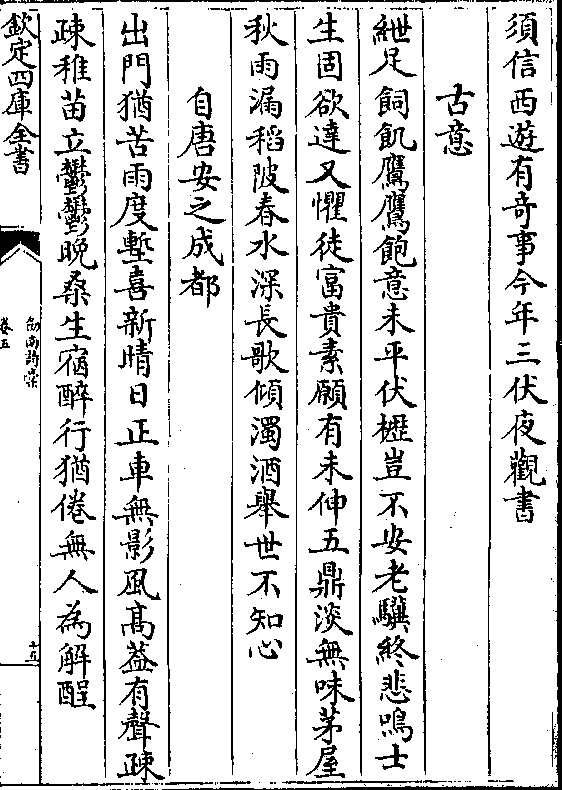 須信西遊有奇事今年三伏夜觀書
古意
紲足飼飢鷹鷹飽意未平伏櫪豈不安老驥終悲鳴士
生固欲達又懼徒富貴素願有未伸五鼎淡無味茅屋
秋雨漏稻陂春水深長歌傾濁酒舉世不知心
自唐安之成都
出門猶苦雨度塹喜新晴日正車無影風髙葢有聲疎
疎稚苗立鬱鬱晩桑生宿醉行猶倦無人為解酲
欽定四庫全書
劍南詩稾
卷五
十五